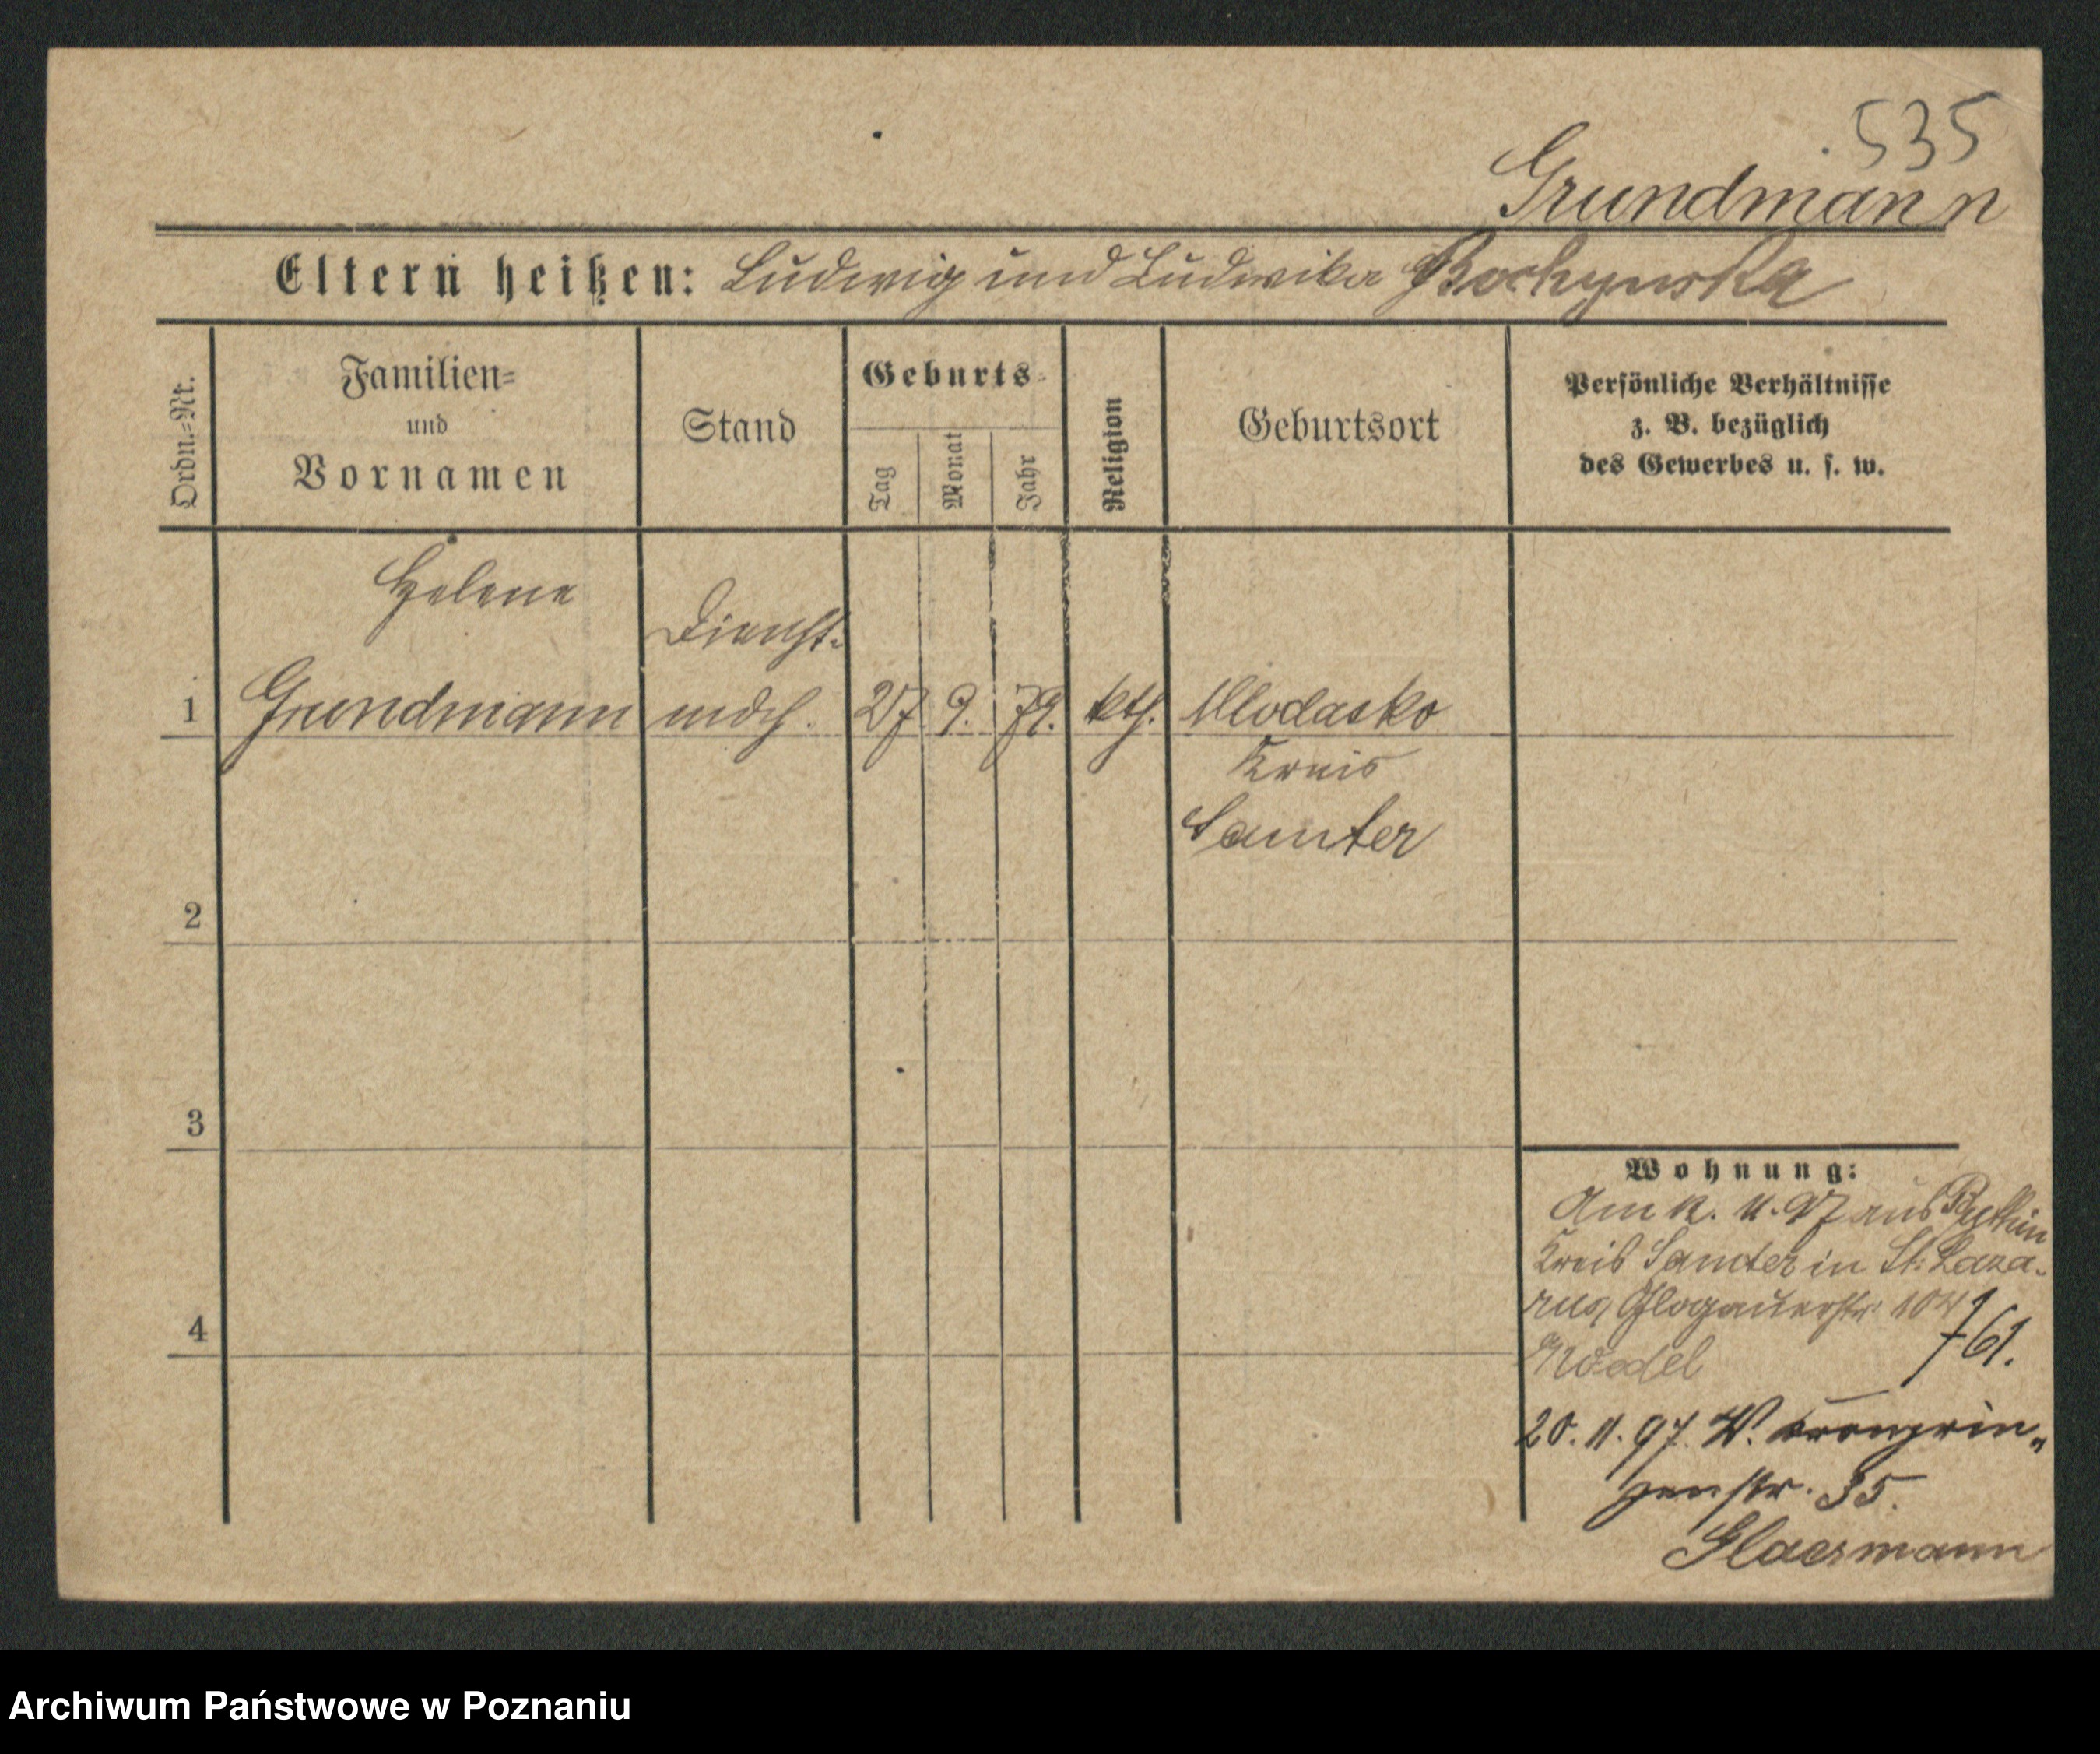 535
Grundmann
Eltern heißen: Ludwig und Ludwika Bochynska
Ordn.=Nr.
Familien=
und
Vornamen
Stand
Geburts=
Tag
Monat
Jahr
Religion
Geburtsort
Persönliche Verhältnisse
z. B. bezüglich
des Gewerbes u. s. w.
Helene
Dienst-
1 Grundmann mdch. 27 9. 79. kth. Mlodasko
Kreis
Samter
2
3
4
Wohnung:
Am 11. 97 aus
Kreis Samter in St. Laza-
rus, Glogauerstr. 104
761.
20. 11. 97. W. Kronprin-
zenstr. 35.
Glaesmann
Archiwum Państwowe w Poznaniu